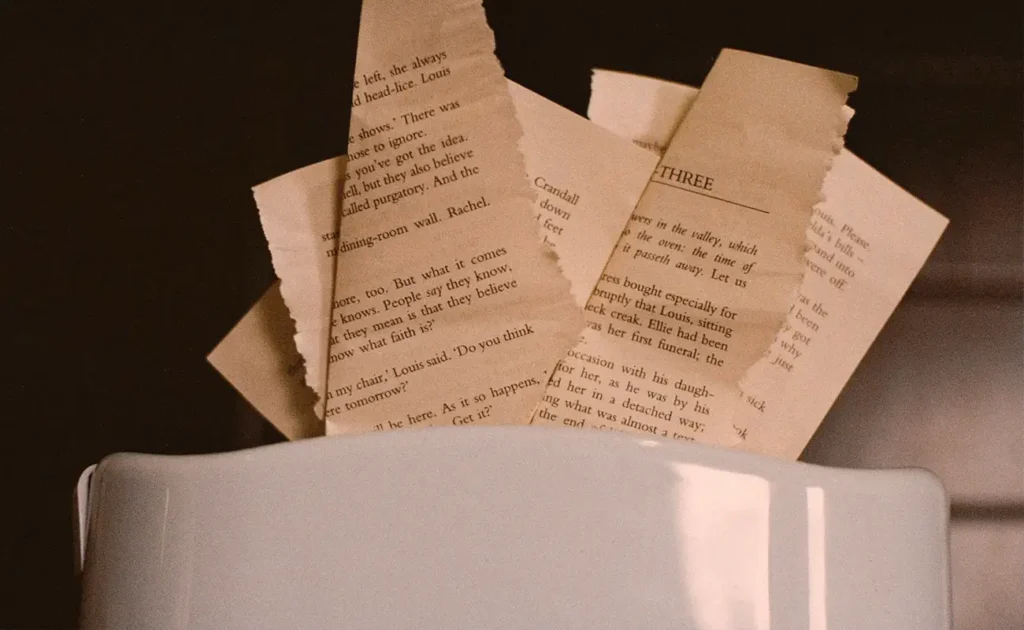 left, she always
head-lice. Louis
shows.' There was
to ignore.
you've got the idea.
but they also believe
called purgatory. And the
dining-room wall. Rachel.
too. But what it comes
knows. People say they know,
they mean is that they believe
what faith is?'
my chair,' Louis said. 'Do you think
tomorrow?'
be here. As it so happens,
Get it?'
Crandall
down
feet
-THREE
in the valley, which
the oven: the time of
it passeth away. Let us
bought especially for
that Louis, sitting
creak. Ellie had been
her first funeral; the
occasion with his daugh-
for her, as he was by his
her in a detached way;
what was almost a
the end
Please.
bills –
into
were off.
the
been
got
why
just
sick